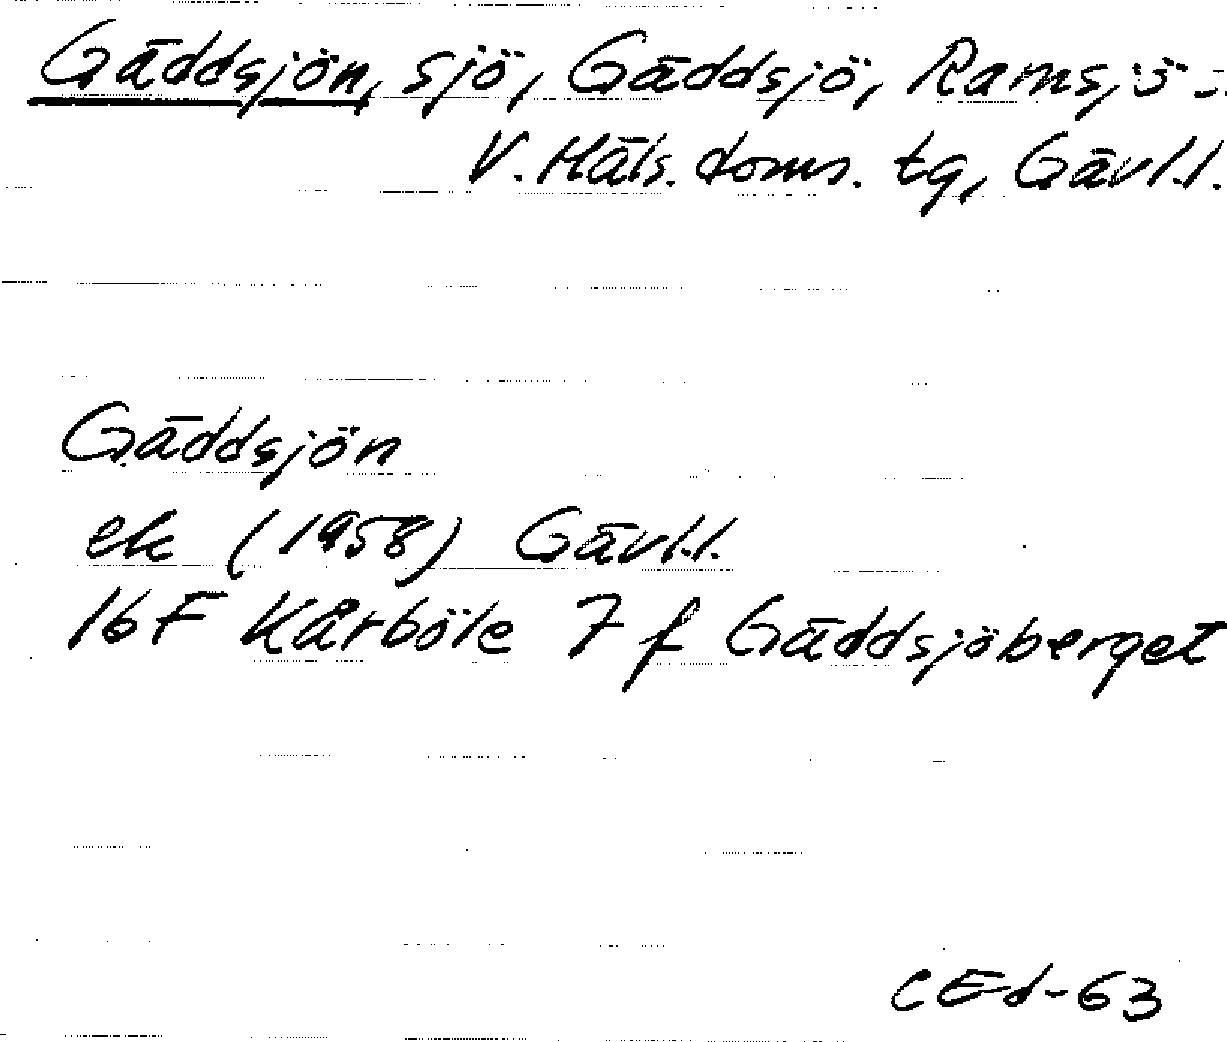 Gäddsjön, sjö, Gäddsjö, Ramsjö s:n
V. Häls. doms. tg, Gävl.l.
Gäddsjön
ek (1958) Gävl.l.
16 F Kårböle 7 f Gäddsjöberget
CEd-63